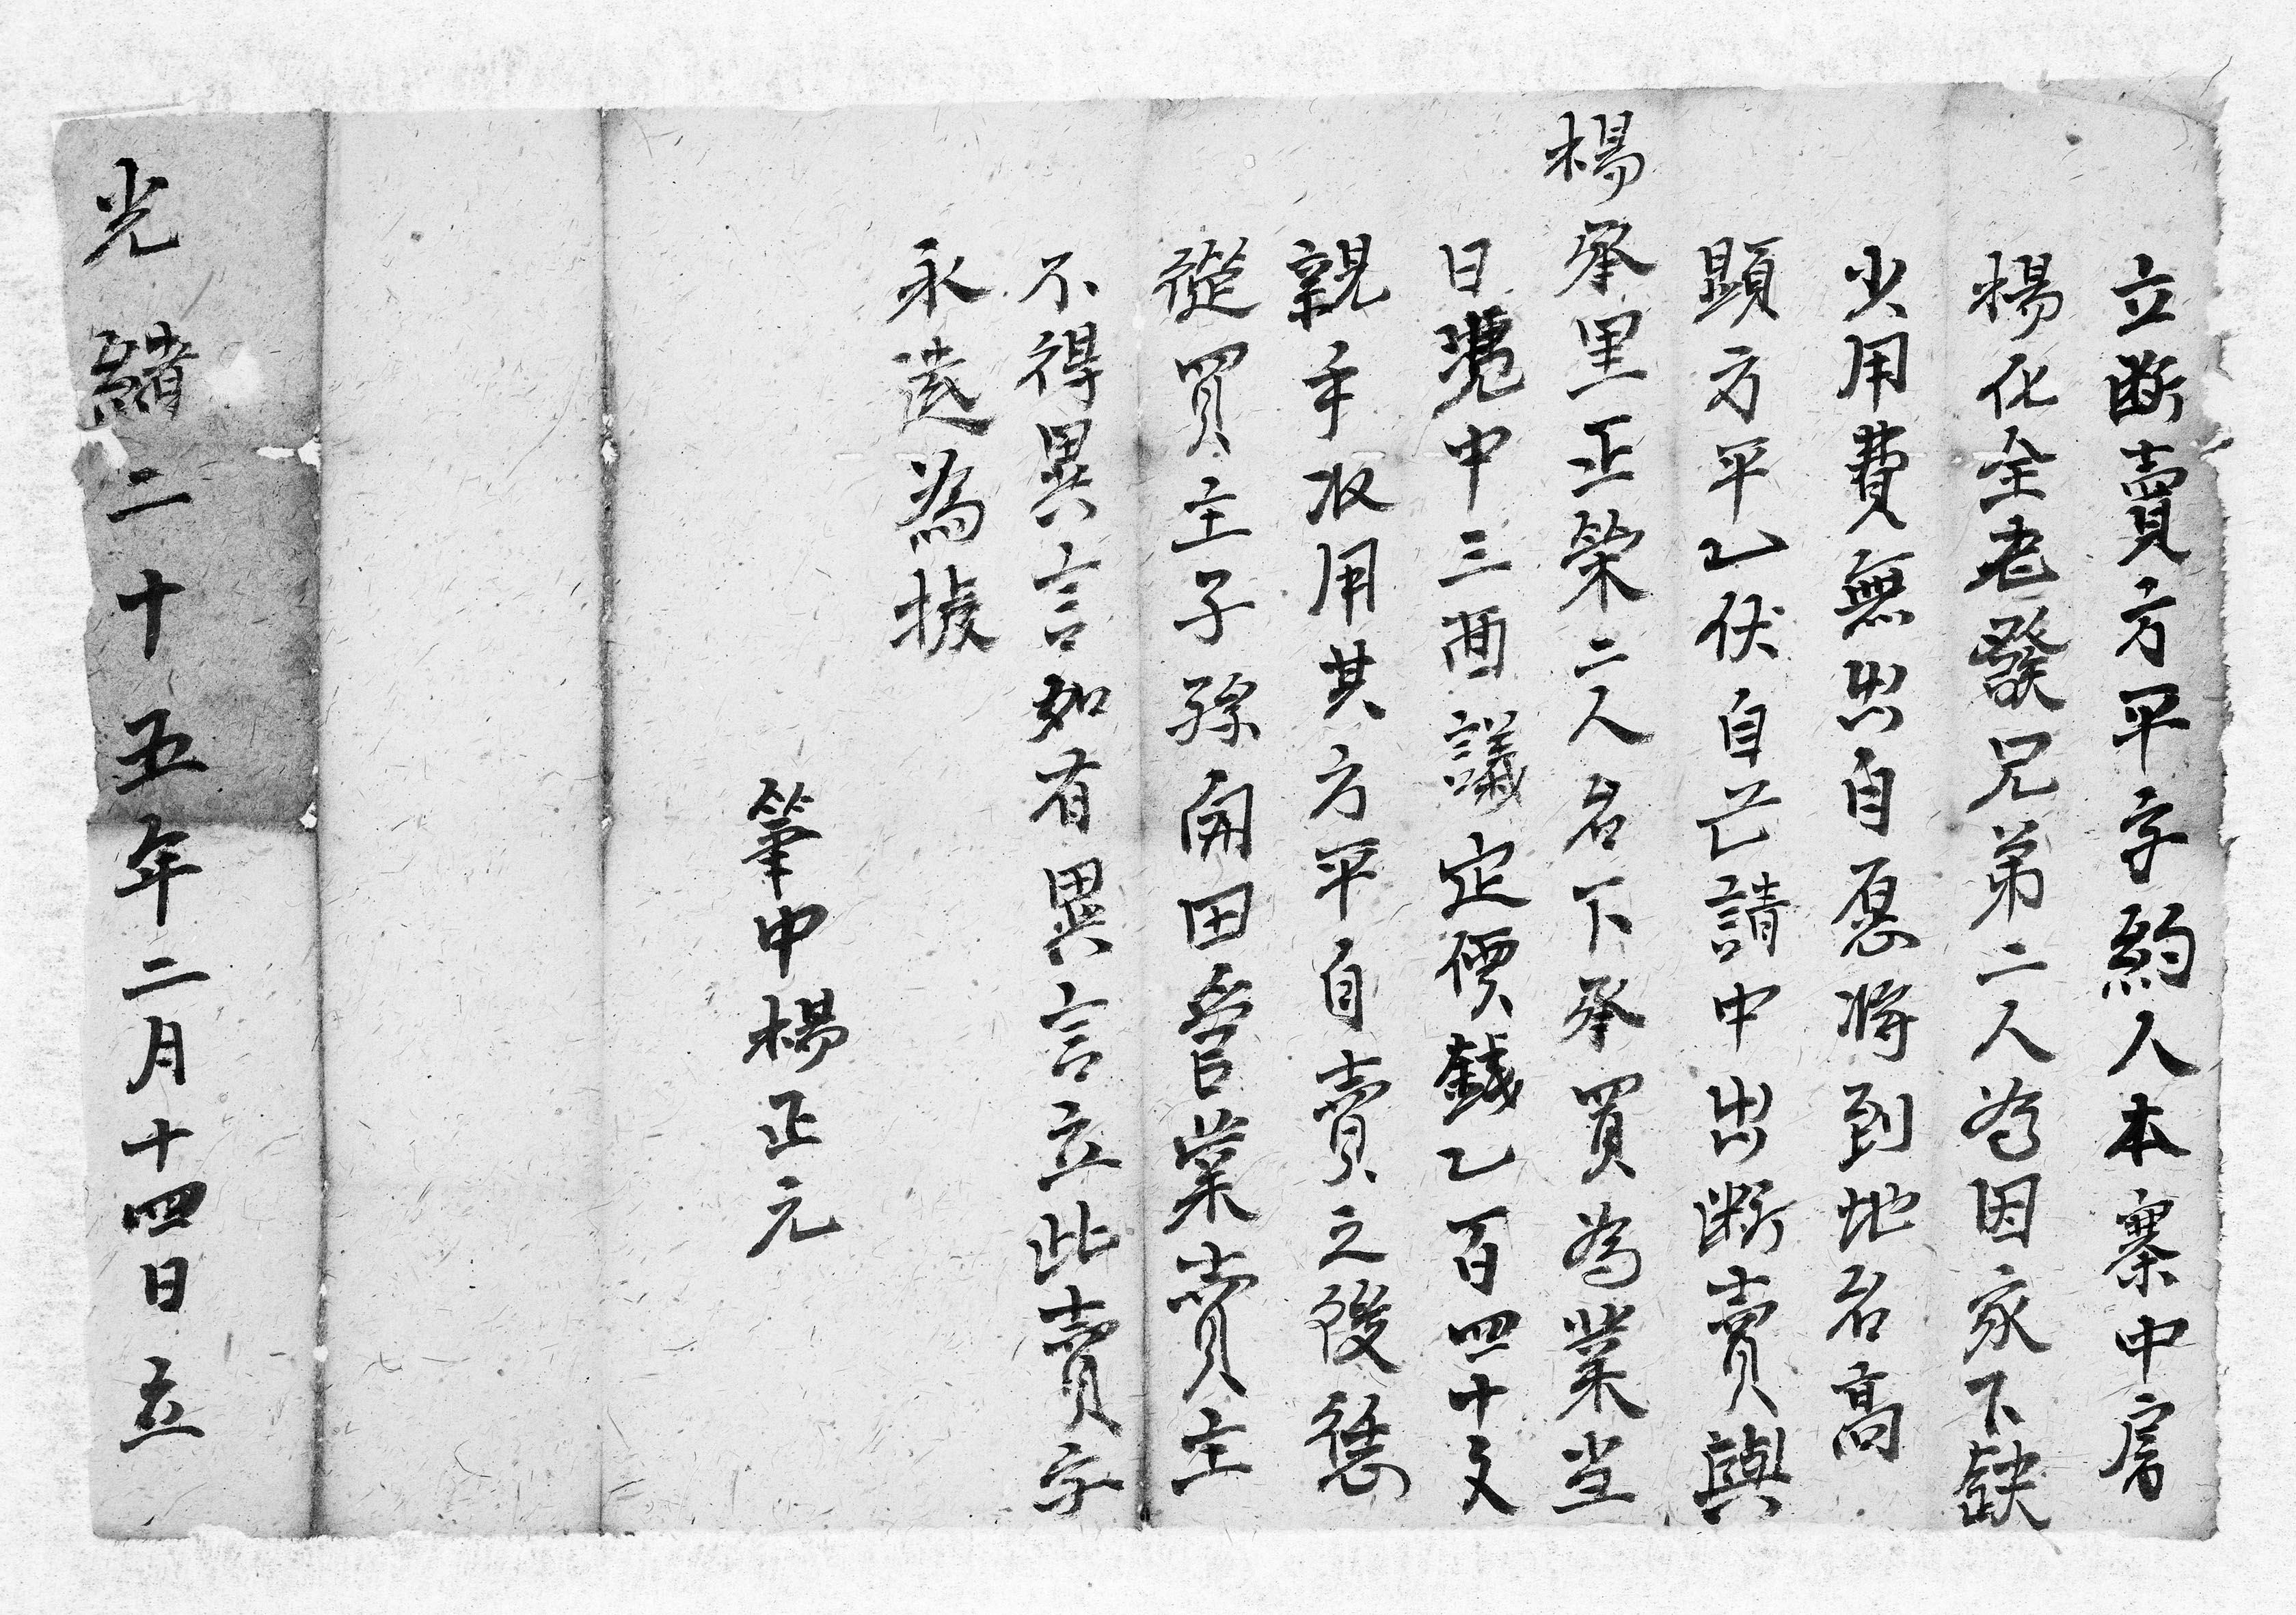 立断賣方平字約人本寨中房
楊化全老發兄弟二人為因家下缺
少用費無出自愿將到地名高
顕方平乙伏自亡請中出断賣與
楊承里正榮二人名下承買為業当
日憑中三面議定價錢乙百四十文
親手収用其方平自賣之後憑
從買主子孫開田管業賣主
不得異言如有異言立此賣字
永遠為據
筆中楊正元
光緒二十五年二月十四日立